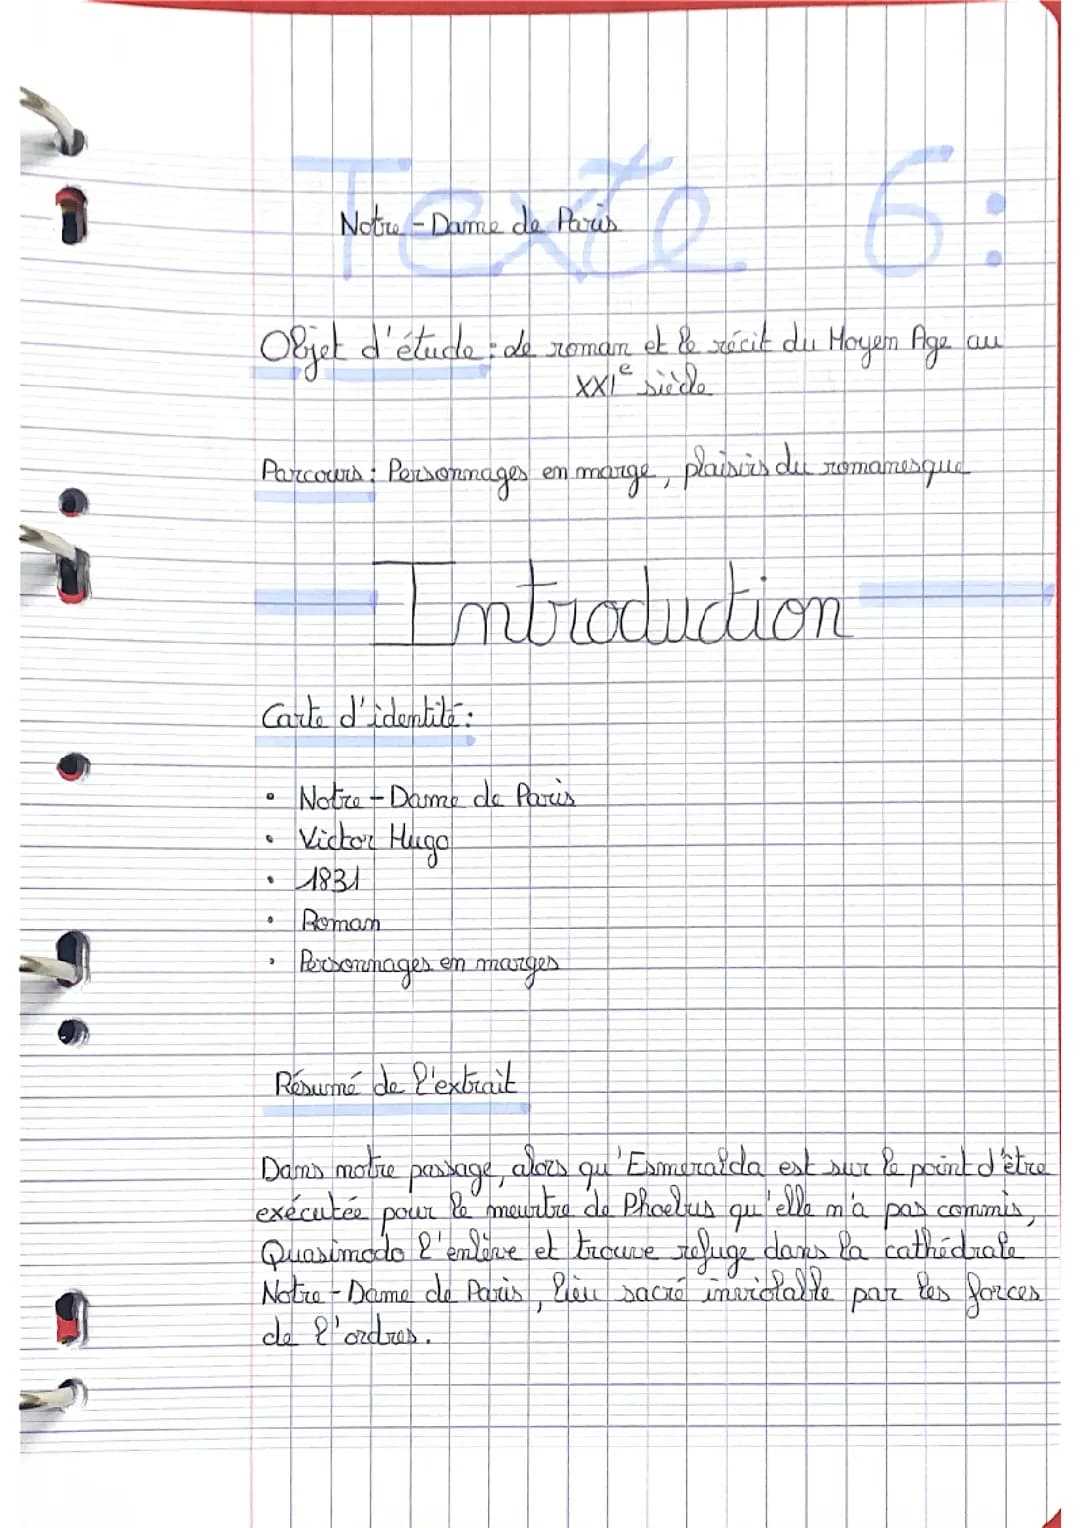 Texte 6 :
Notre-Dame de Paris
Objet d'étude : Le roman et le récit du Moyen Age au
XXIe siècle
Parcours : Personnages en marge, plaisirs du romanesque
Introduction
Carte d'identité :
• Notre-Dame de Paris
• Victor Hugo
• 1831
• Roman
• Personnages en marges
Résumé de l'extrait
Dans notre passage, alors qu'Esmeralda est sur le point d'être
exécutée pour le meurtre de Phoebus qu'elle n'a pas commis,
Quasimodo l'enlève et trouve refuge dans la cathédrale
Notre-Dame de Paris, lieu sacré inviolable par les forces
de l'ordres.